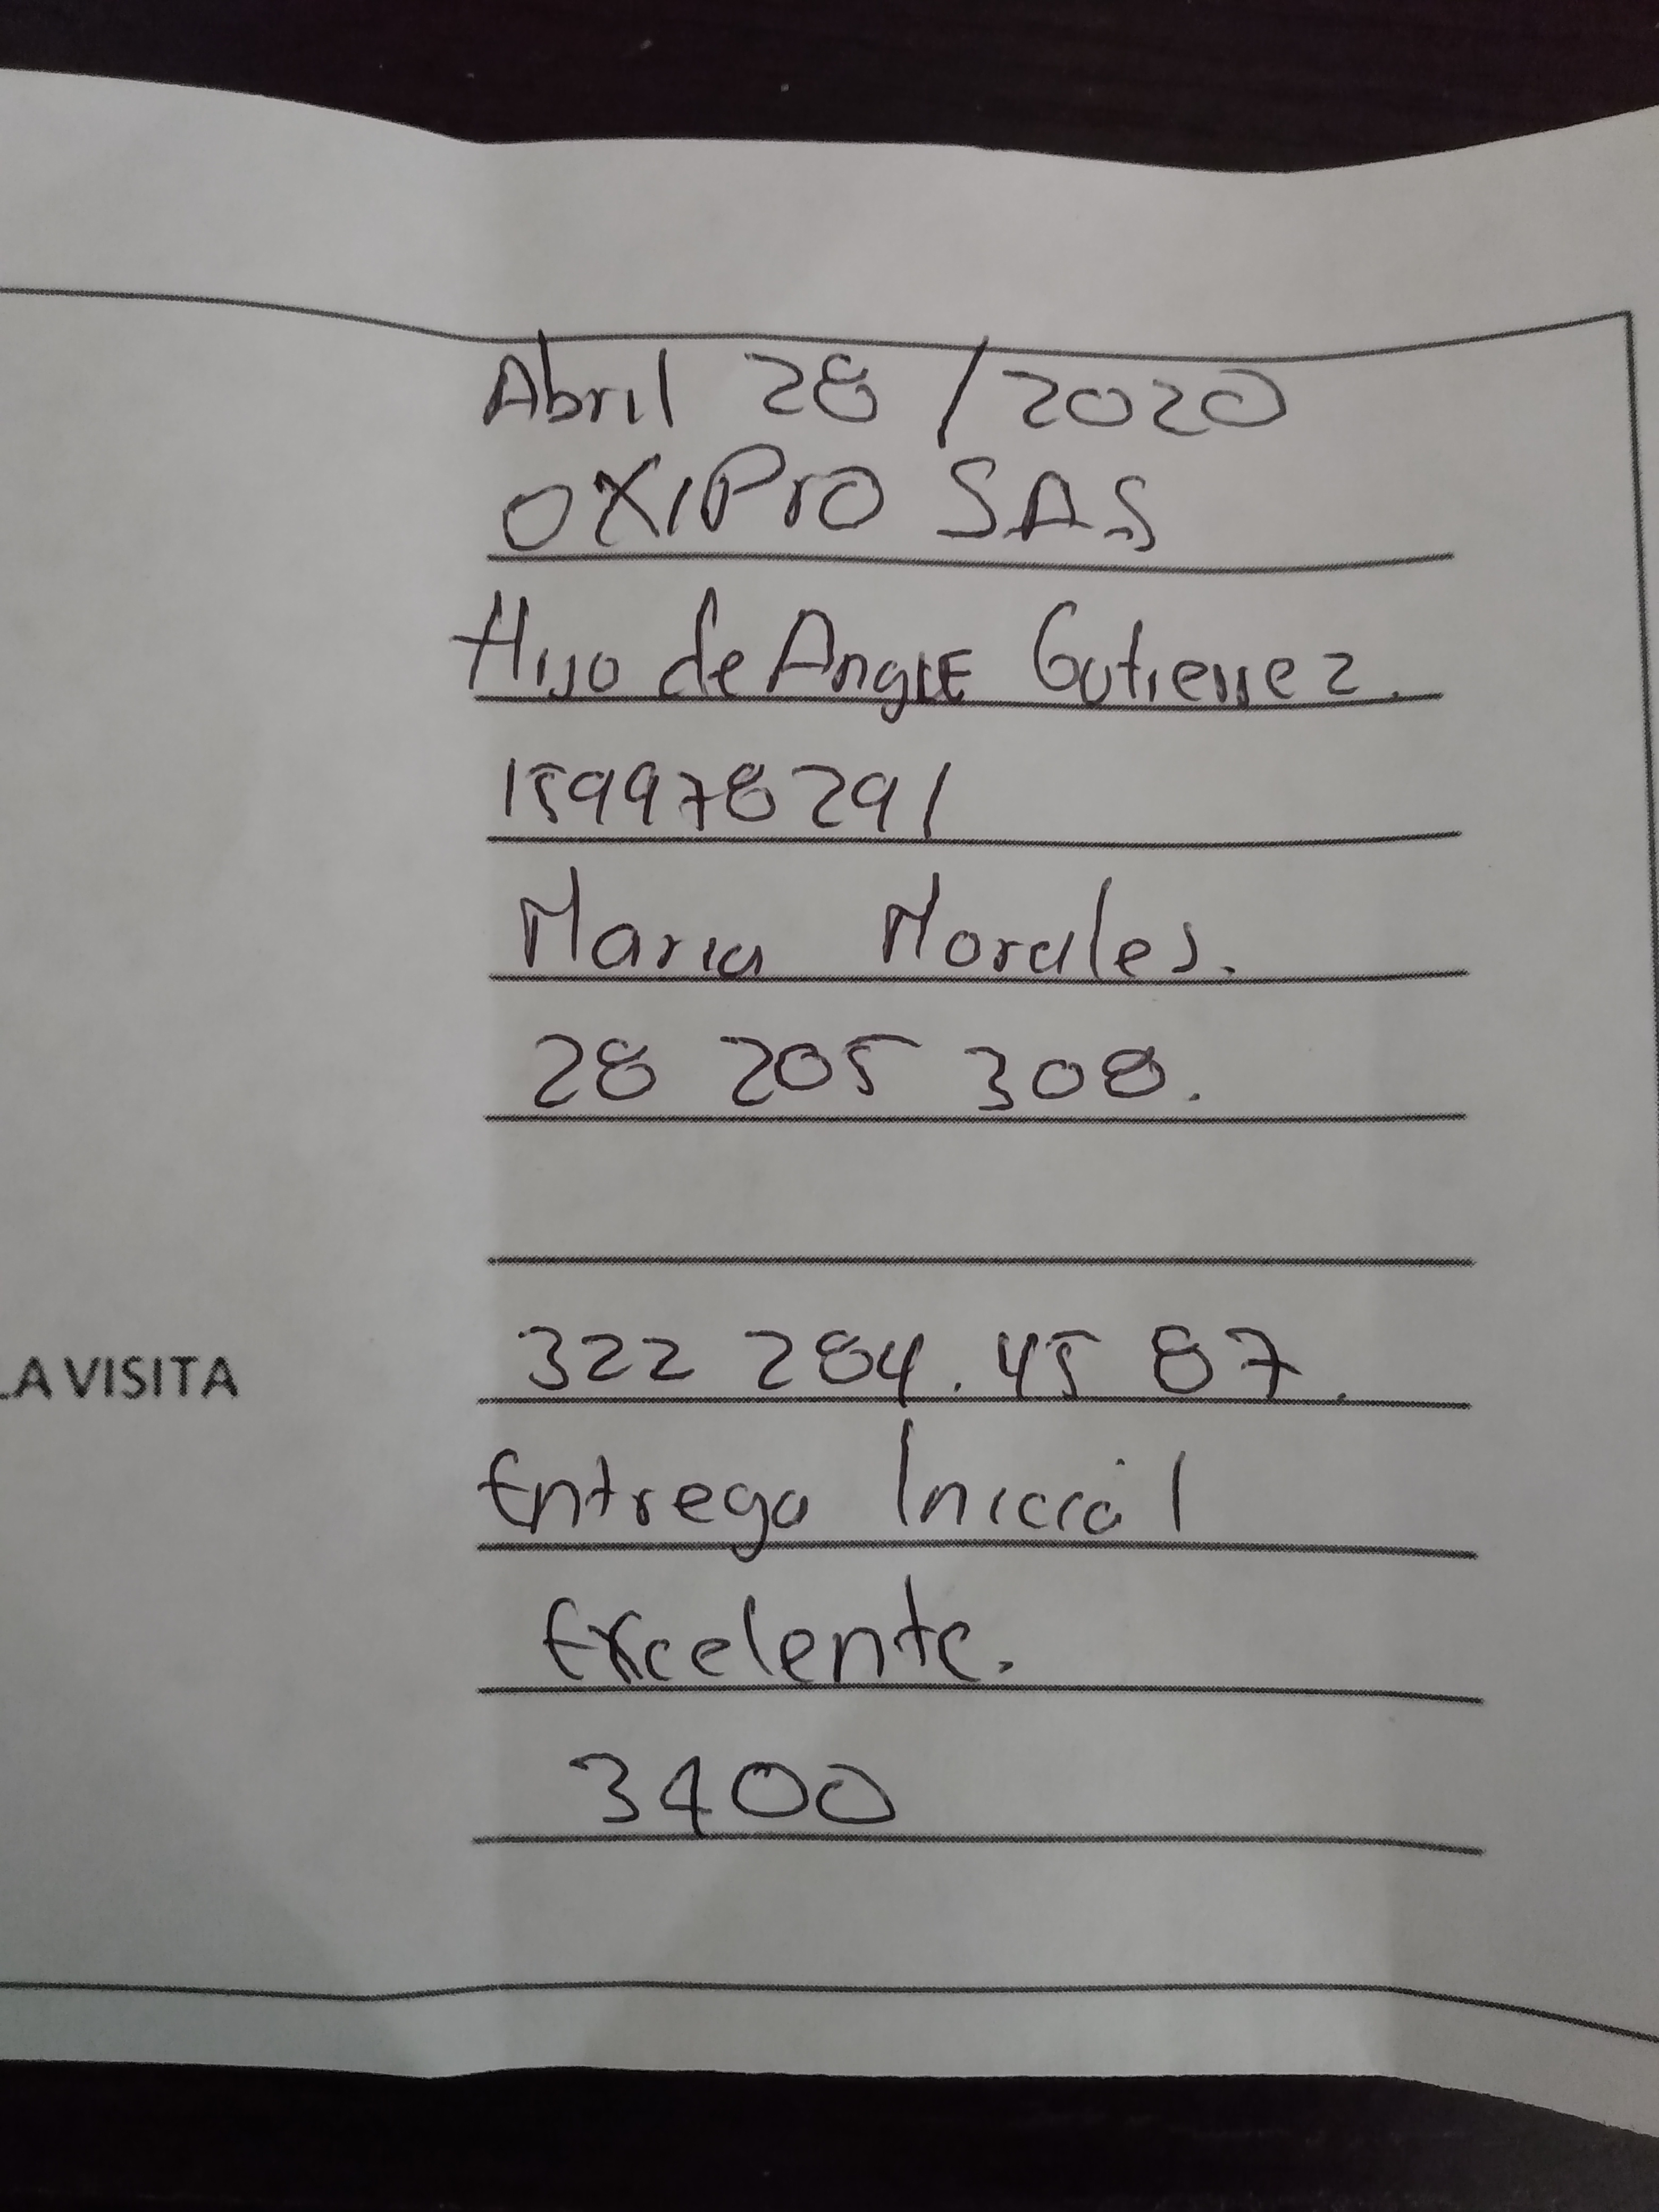 Abril 28 / 2020
OXIPrO SAS
Hijo de Angie Gutierrez.
159978291
Maria Morales.
28 205 308.
LA VISITA 322 284. 45 87.
Entrega Inicial
Excelente.
3400